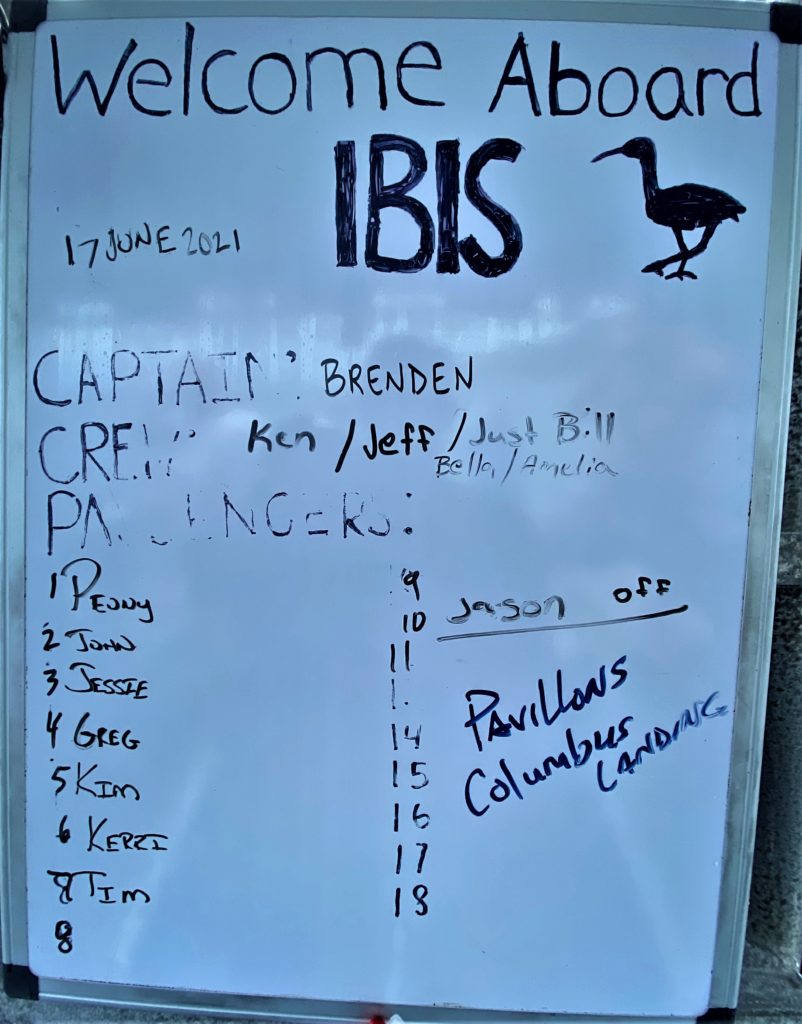 Welcome Aboard
IBIS
17 JUNE 2021
CAPTAIN: BRENDEN
CREW: Ken / Jeff / Just Bill
Bella / Amelia
PASSENGERS:
1 PEONY
2 JOHN
3 JESSIE
4 GREG
5 KIM
6 KERRI
TIM
8
9
10
11
1
14
15
16
17
18
Jason off
PAVILLONS
Columbus
LANDING